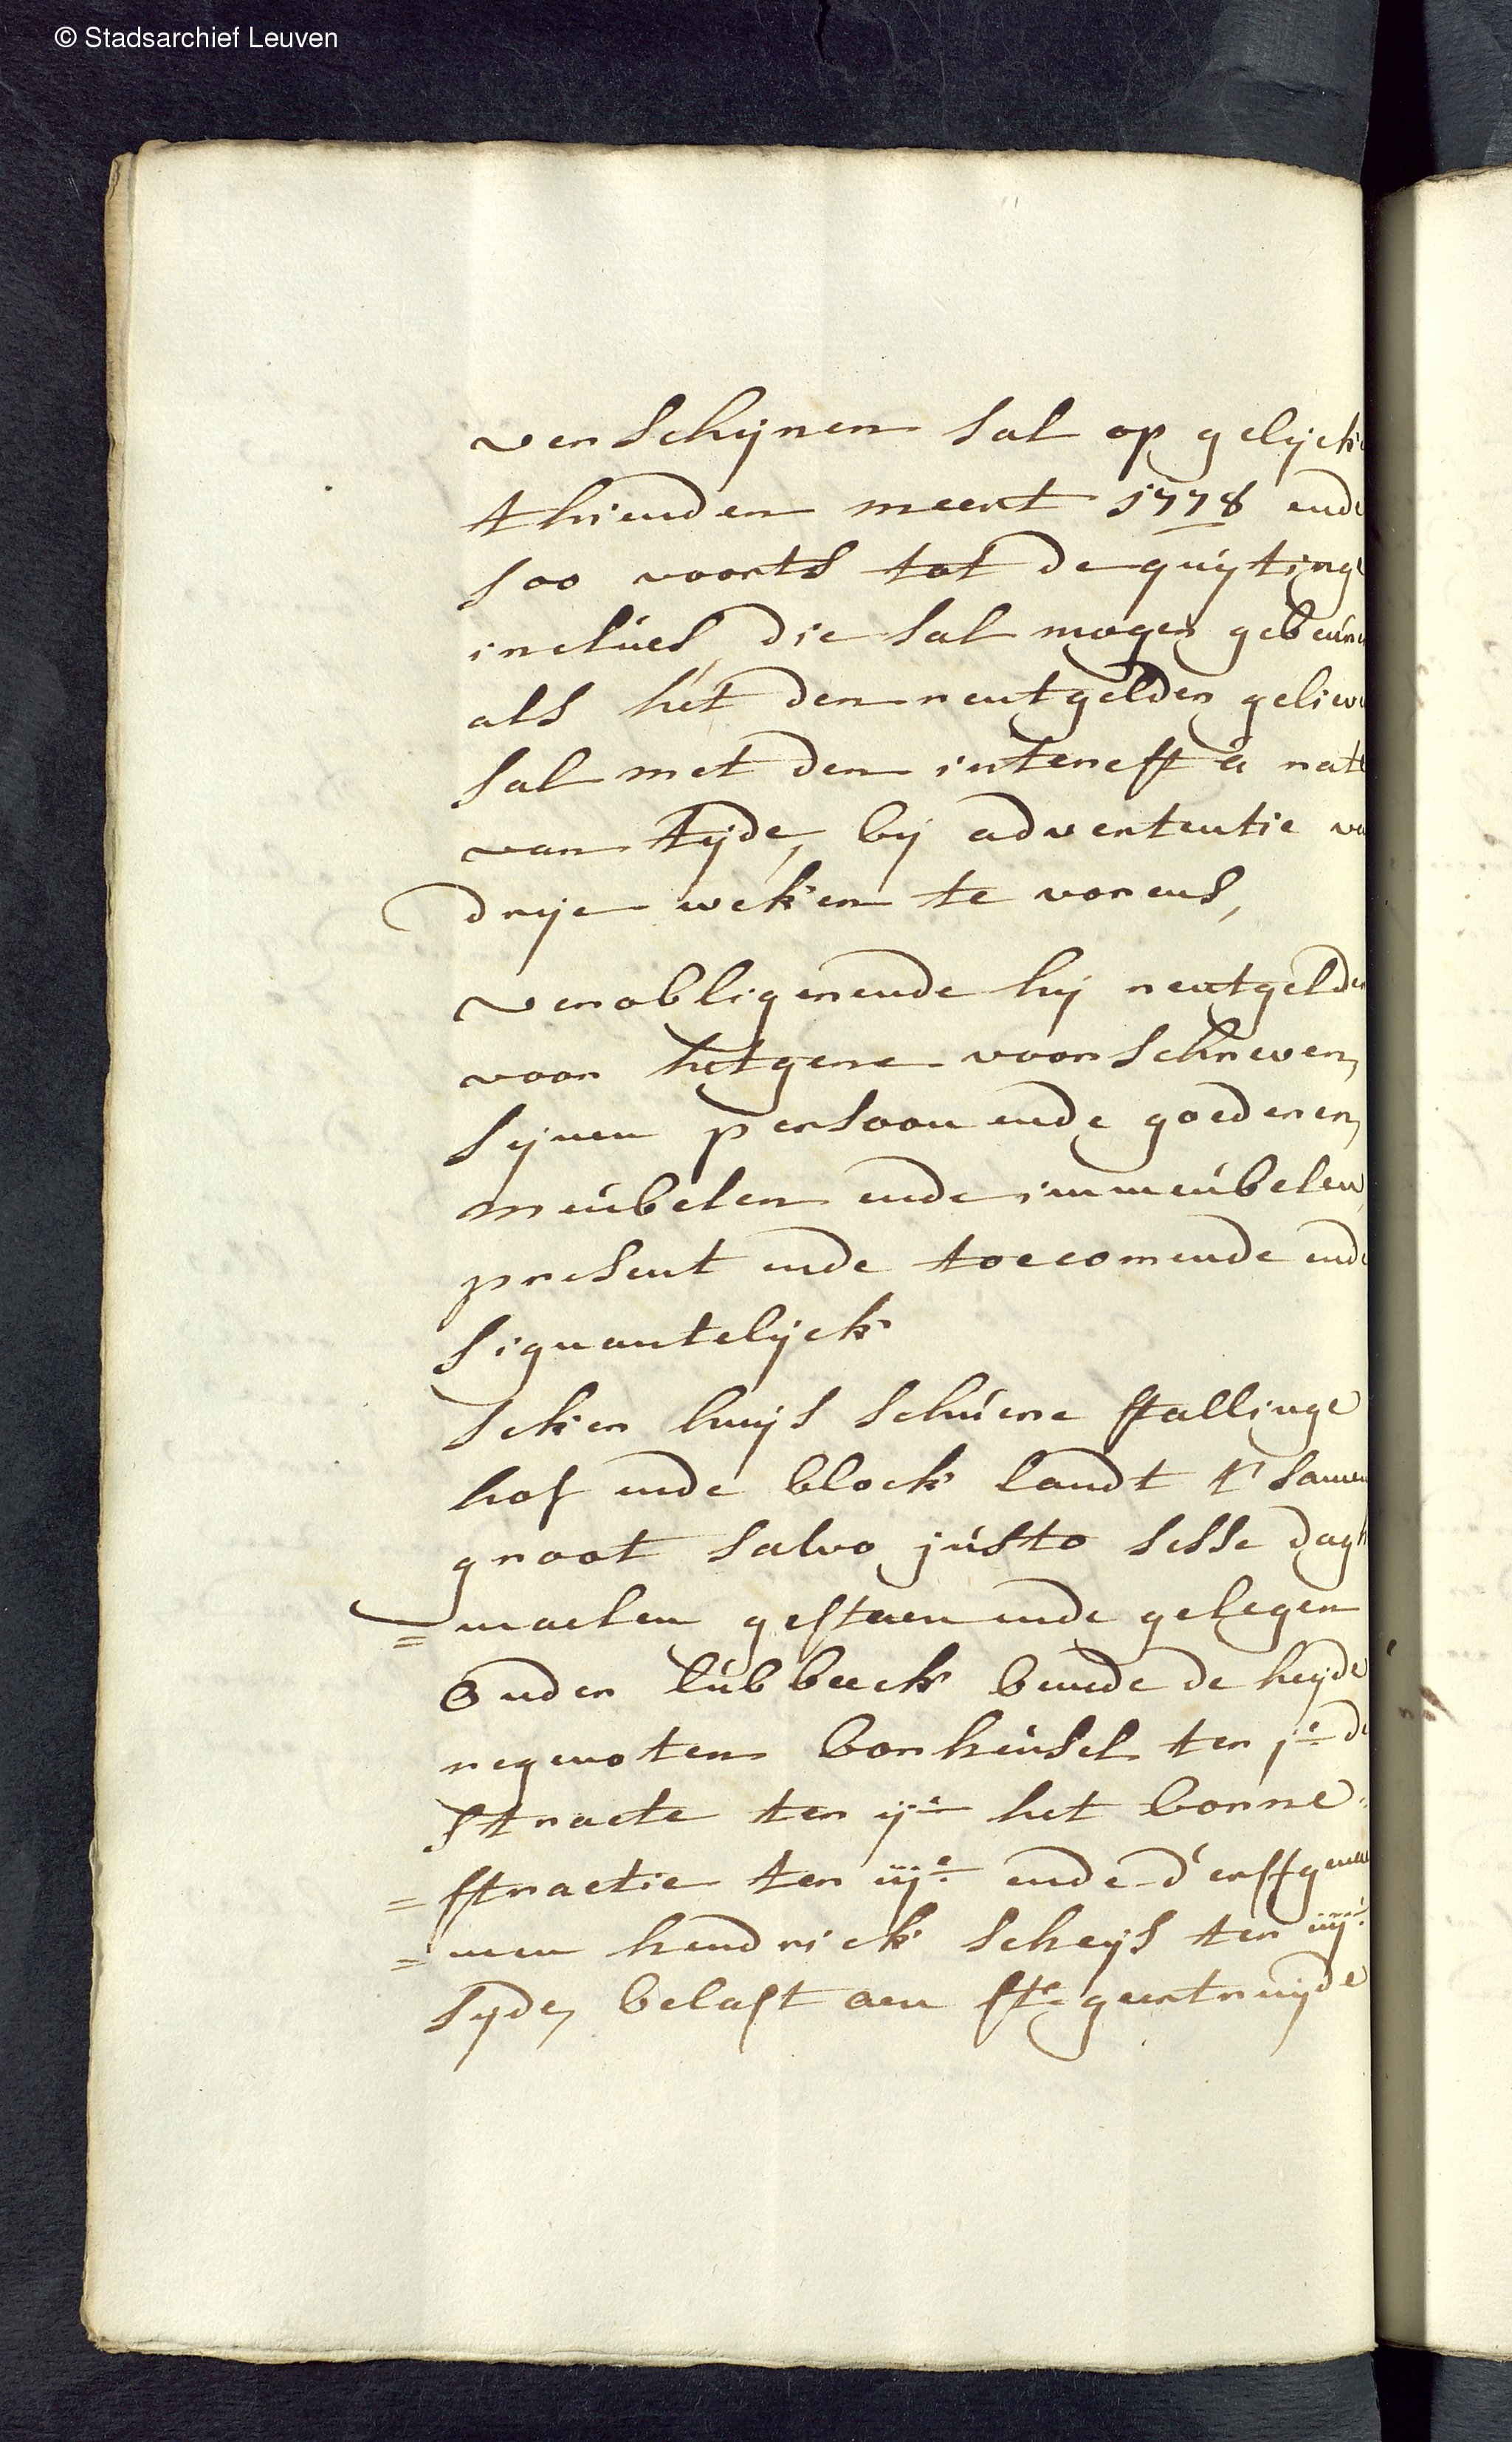 © Stadsarchief Leuven
verschijnen sal op gelijck
thienden meert 1778 ende
soo voorts tot de quijtinge
inclúes, die sal mogen gebeúren
als het den rentgelder gelieven
sal met den interest à rate
van tijde, bij advertentie van
drije weken te vorens,
verobligerende hij rentgelder
voor hetgene voorschreven,
sijnen persoon ende goederen,
meúbelen ende immeúbelen,
present ende toecomende ende
signantelijck
seker huijs schúere stallinge
hof ende block landt t' samen
groot salvo jústo sesse dagh
=maelen gestaen ende gelegen
onder lúbbeeck benede de heijde
regenoten borheúsel ter je de
straete ter ije het borne=
=straetie ter iije ende d'erffgena
=men hendrick scheijs ter iiije
sijde, belast aen ste geertruijde